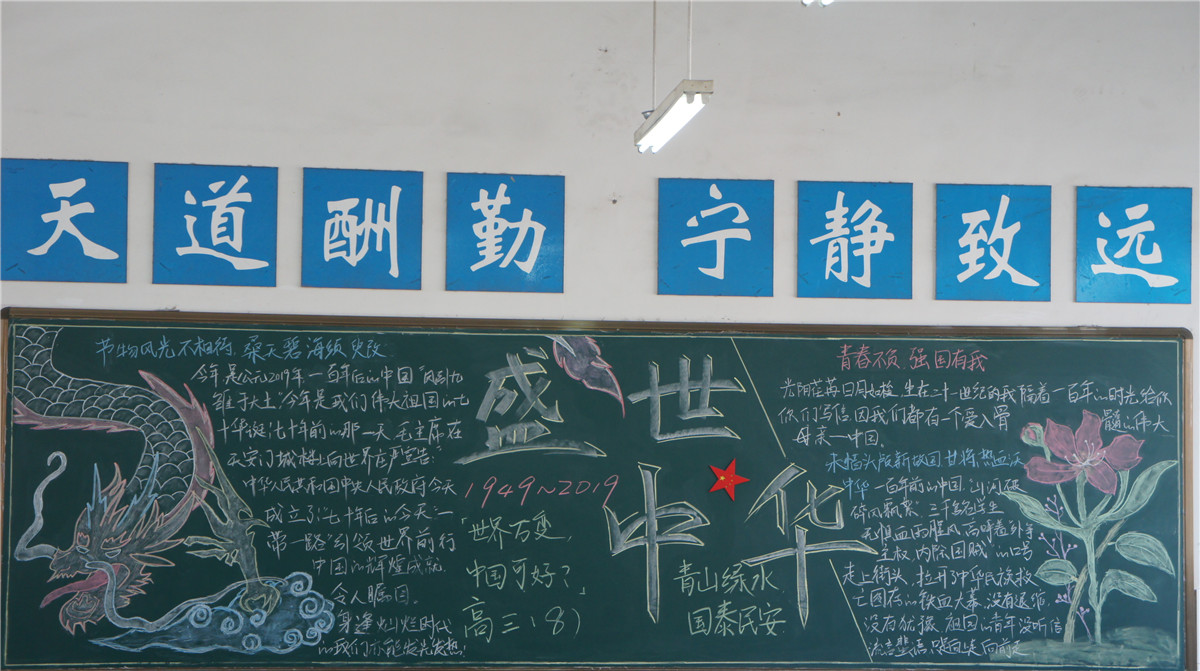 天道酬勤 宁静致远
节物风光不相待,桑天碧海须臾改
今年是公元2019年,一百年后的中国"风别九
雏于大土,今年是我们伟大祖国的七
十华诞,七十年前的那一天,毛主席在
天安门城楼上向世界庄严宣告:"
中华人民共和国中央人民政府今天
成立了!"七十年后的今天,"一
带一路"引领世界前行
中国的辉煌成就,
令人瞩目。
身逢灿烂时代
的我们亦能发光发热!
盛世
中华
1949~2019
「世界万变,
中国可好?」
高三(8)
青山绿水
国泰民安
青春不负 强国有我
光阴荏苒日月如梭,生在二十一世纪的我隔着一百年的时光给你
你们写信,因我们都有一个爱入骨
髓的伟大
母亲——中国。
中华 一百年前的中国,山河破
碎风飘絮,三千名学生
无惧血雨腥风,高呼着"外争
主权,内除国贼"的口号
走上街头,拉开了中华民族救
亡图存的铁血大幕,没有退缩,
没有犹豫,祖国的青年没听信